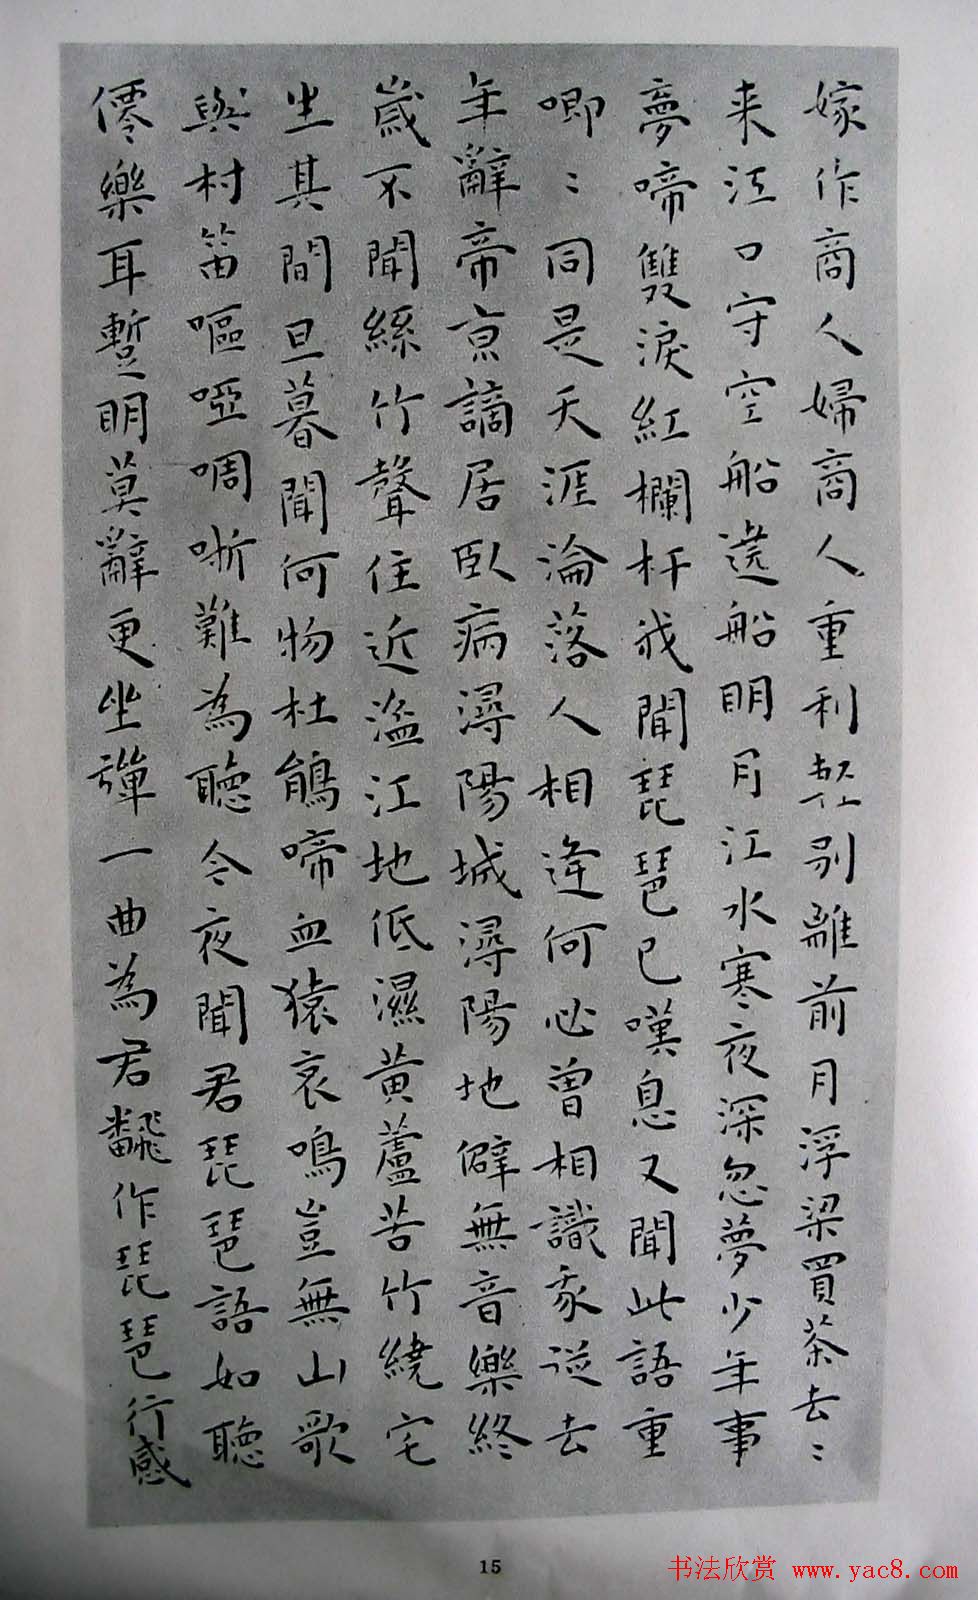 嫁作商人婦商人重利輕別離前月浮梁買茶去〻
来江口守空船遶船明月江水寒夜深忽夢少年事
夢啼雙淚紅欄杆我聞琵琶已嘆息又聞此語重
唧〻同是天涯淪落人相逢何必曾相識我從去
年辭帝京謫居臥病潯陽城潯陽地僻無音樂終
歲不聞絲竹聲住近湓江地低濕黃蘆苦竹繞宅
生其間旦暮聞何物杜鵑啼血猿哀鳴豈無山歌
與村笛嘔啞啁哳難為聽今夜聞君琵琶語如聽
僊樂耳暫明莫辭更坐彈一曲為君飜作琵琶行感
15
书法欣赏 www.yac8.com